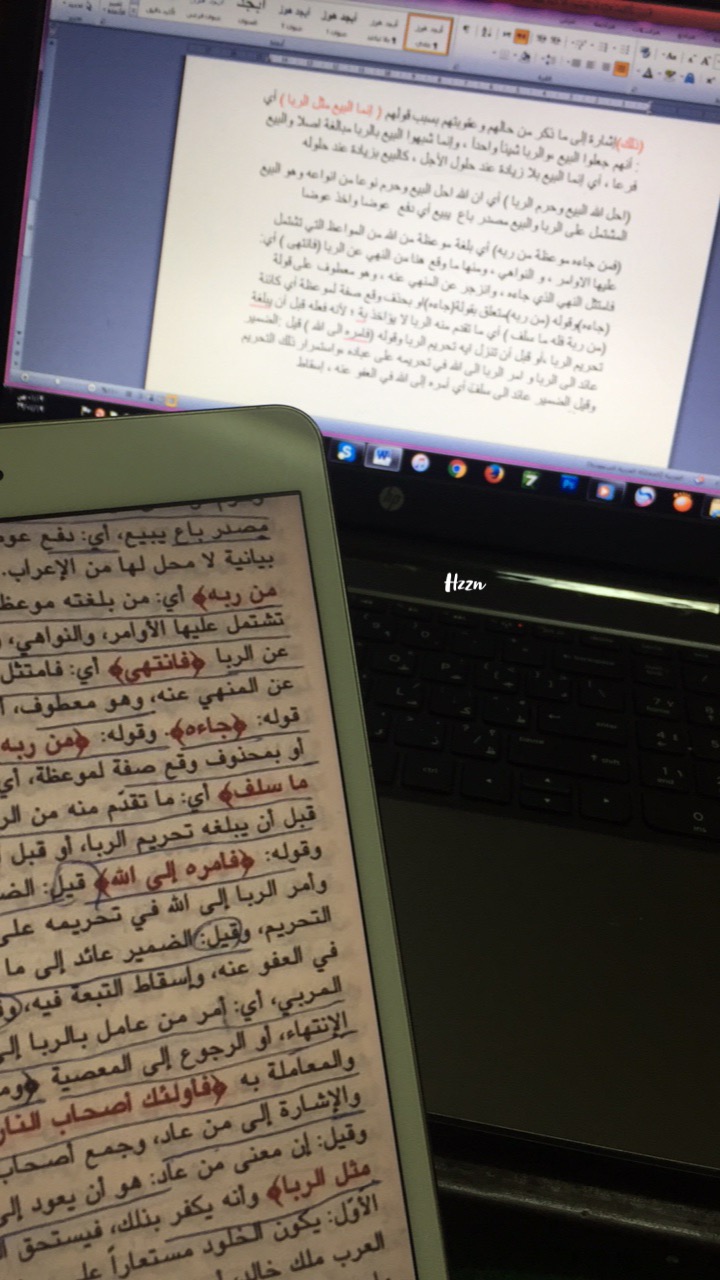 أبجد هوز
أبجد هوز
أبجد هوز
أبجد هوز
(ذلك)إشارة إلى ما ذكر من حالهم وعقوبتهم بسبب قولهم ( إنما البيع مثل الربا ) أي
: أنهم جعلوا البيع والربا شيئاً واحداً ، وإنما شبهوا البيع بالربا مبالغة اصلا والبيع
فرعا ، أي إنما البيع بلا زيادة عند حلول الأجل ، كالبيع بزيادة عند حلوله
(احل الله البيع وحرم الربا ) أي ان الله احل البيع وحرم نوعا من انواعه وهو البيع
المشتمل على الربا والبيع مصدر باع يبيع أي دفع عوضا واخذ عوضا
(فمن جاءه موعظة من ربه) أي بلغة موعظة من الله من المواعظ التي تشتمل
عليها الاوامر ، و النواهي ، ومنها ما وقع هنا من النهي عن الربا (فانتهى ) أي:
فامتثل النهي الذي جاءه ، وانزجر عن المنهي عنه ، وهو معطوف على قولة
(جاءه)وقوله (من ربه)متعلق بقولة(جاءه)او بحذف وقع صفة لموعظة أي كائنة
(من ربة فله ما سلف ) أي ما تقدم منه الربا لا يؤاخذ بة ؛ لأنه فعله قبل أن يبلغة
تحريم الربا ،أو قبل أن تنزل ايه تحريم الربا وقوله (فامره الى الله ) قيل :الضمير
عائد الى الربا و امر الربا الى الله في تحريمه على عباده واستمرار ذلك التحريم
وقيل الضمير عائد الى سلف أي أمره إلى الله في العفو عنه ، إسقاط
hp
Hzzn
مصدر باع يبيع، أي: دفع عوض
بيانية لا محل لها من الإعراب.
من ربه﴾ أي: من بلغته موعظ
تشتمل عليها الأوامر، والنواهي،
عن الربا ﴿فانتهى﴾ أي: فامتثل
عن المنهي عنه، وهو معطوف،
قوله: ﴿جاءه﴾. وقوله: ﴿من ربه
أو بمحذوف وقع صفة لموعظة، أي
ما سلف﴾ أي: ما تقدّم منه من الر
قبل أن يبلغه تحريم الربا، أو قبل
وقوله: ﴿فأمره إلى الله﴾ قيل: الضـ
وأمر الربا إلى الله في تحريمه على
التحريم، وقيل: الضمير عائد إلى ما
في العفو عنه، وإسقاط التبعة فيه،
المربي، أي: أمر من عامل بالربا إلى
الإنتهاء، أو الرجوع إلى المعصية ﴿وم
والمعاملة به ﴿فأولئك أصحاب النار
والإشارة إلى من عاد، وجمع أصحاب
وقيل: إن معنى من عاد: هو أن يعود إلى
مثل الربا﴾ وأنه يكفر بذلك، فيستحق
الأوّل: يكون الخلود مستعاراً على
العرب ملك خالد